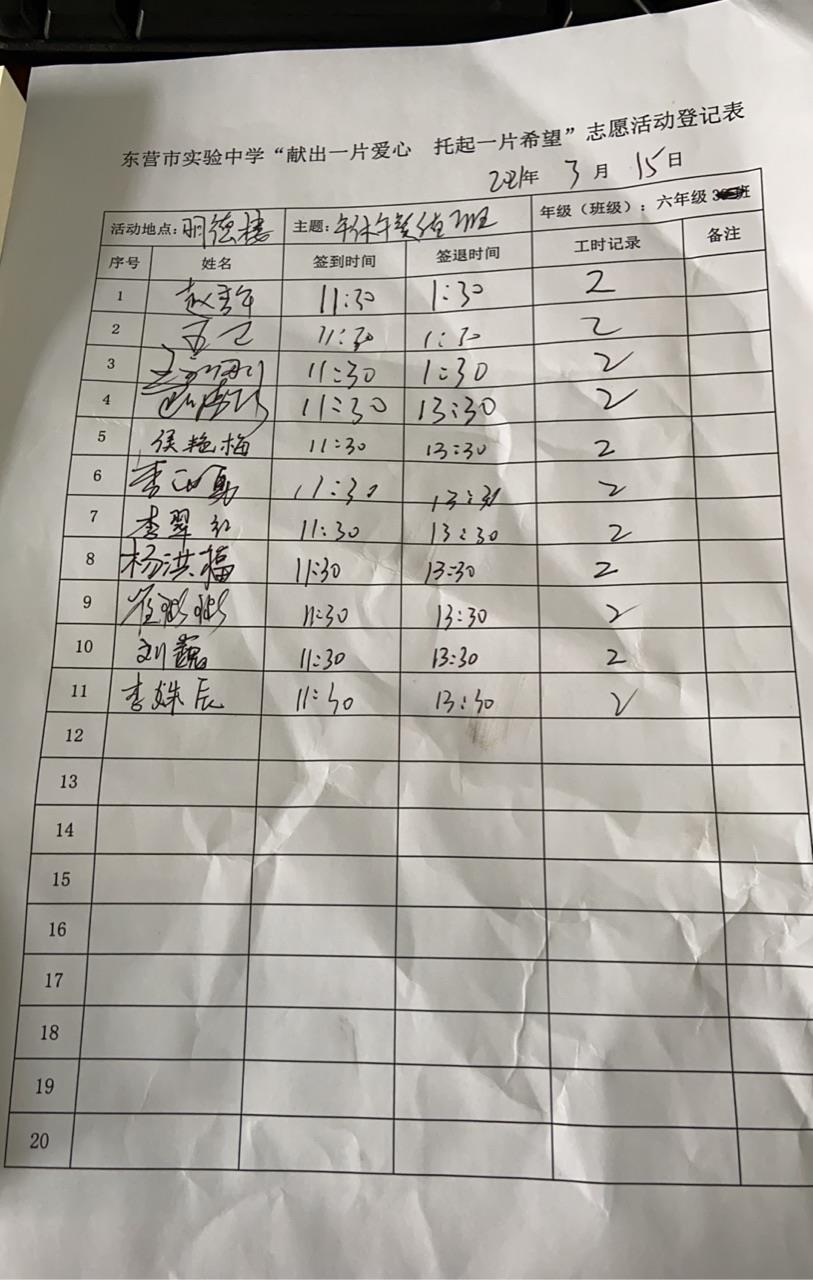 东营市实验中学“献出一片爱心 托起一片希望”志愿活动登记表
2021年 3月 15日
活动地点：明德楼 主题：午休午餐值班 年级（班级）：六年级 班
序号 姓名 签到时间 签退时间 工时记录 备注
1 11:30 1:30 2
2 11:30 1:30 2
3 11:30 1:30 2
4 11:30 13:30 2
5 侯艳梅 11:30 13:30 2
6 11:30 13:30 2
7 李翠红 11:30 13:30 2
8 杨洪福 11:30 13:30 2
9 11:30 13:30 2
10 刘巍 11:30 13:30 2
11 李姝辰 11:30 13:30 2
12
13
14
15
16
17
18
19
20